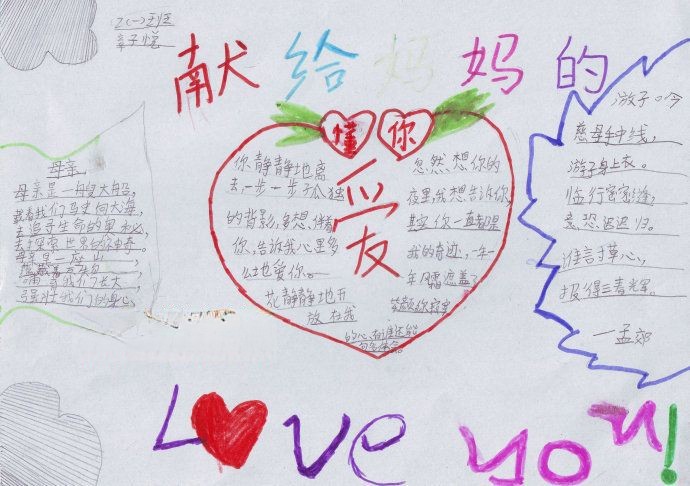 2(一)班
章子悦
献给妈妈的
母亲
母亲是一艘大船,
载着我们驶向大海,
去追寻生命的奥秘,
去探索世界的神奇。
母亲是一座山,
哺育我们长大
强壮我们的身心
懂你
爱
你静静地离
去一步一步孤独
的背影,多想伴着
你,告诉我心里多
么地爱你。
花静静地开
放 在我
忽然想你的
夜里,我想告诉你,
其实你一直都是
我的奇迹,一年一
年风霜遮盖了
笑颜你寂寞
的心有谁还能
游子吟
慈母手中线,
游子身上衣。
临行密密缝,
意恐迟迟归。
谁言寸草心,
报得三春晖。
—孟郊
Love you!